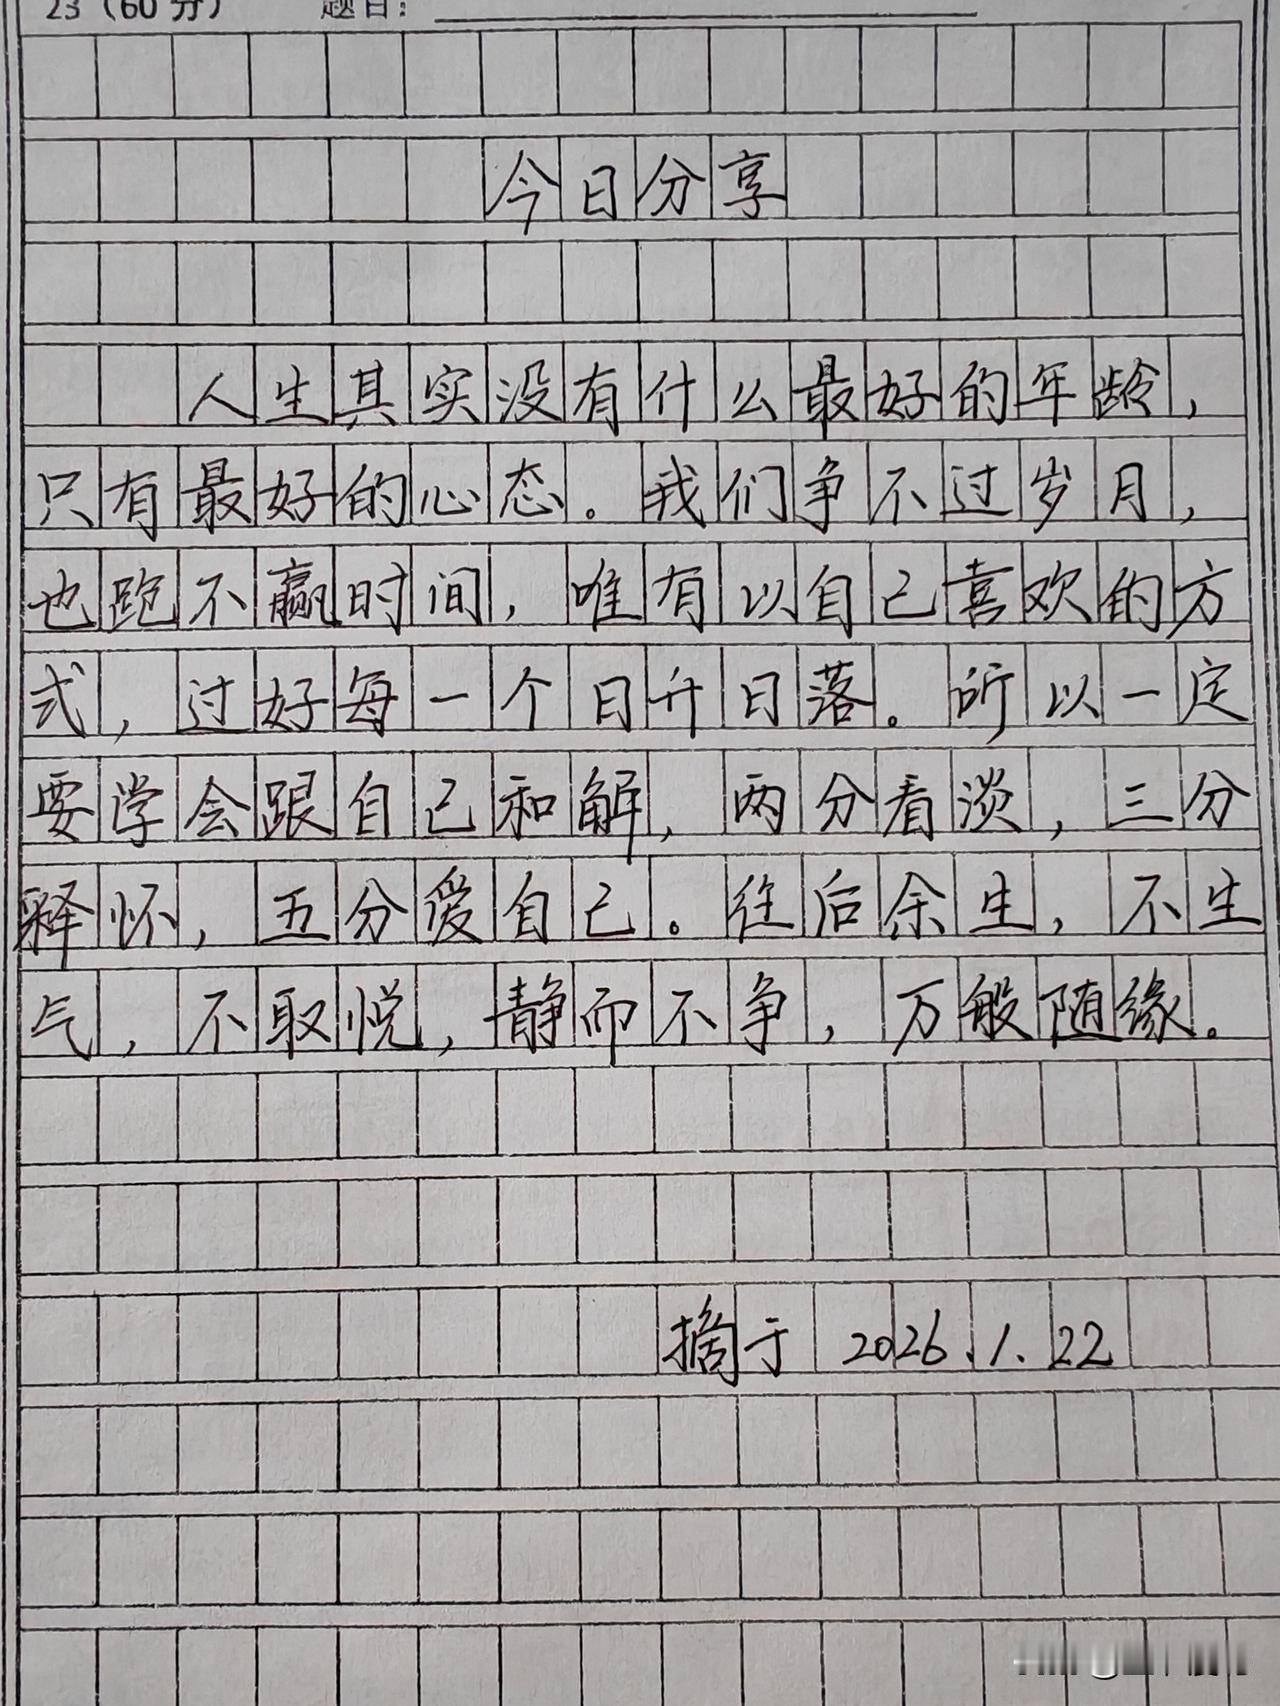 23（60分）　题目：
今日分享
人生其实没有什么最好的年龄，
只有最好的心态。我们争不过岁月，
也跑不赢时间，唯有以自己喜欢的方
式，过好每一个日升日落。所以一定
要学会跟自己和解，两分看淡，三分
释怀，五分爱自己。往后余生，不生
气，不取悦，静而不争，万般随缘。
摘于 2026.1.22